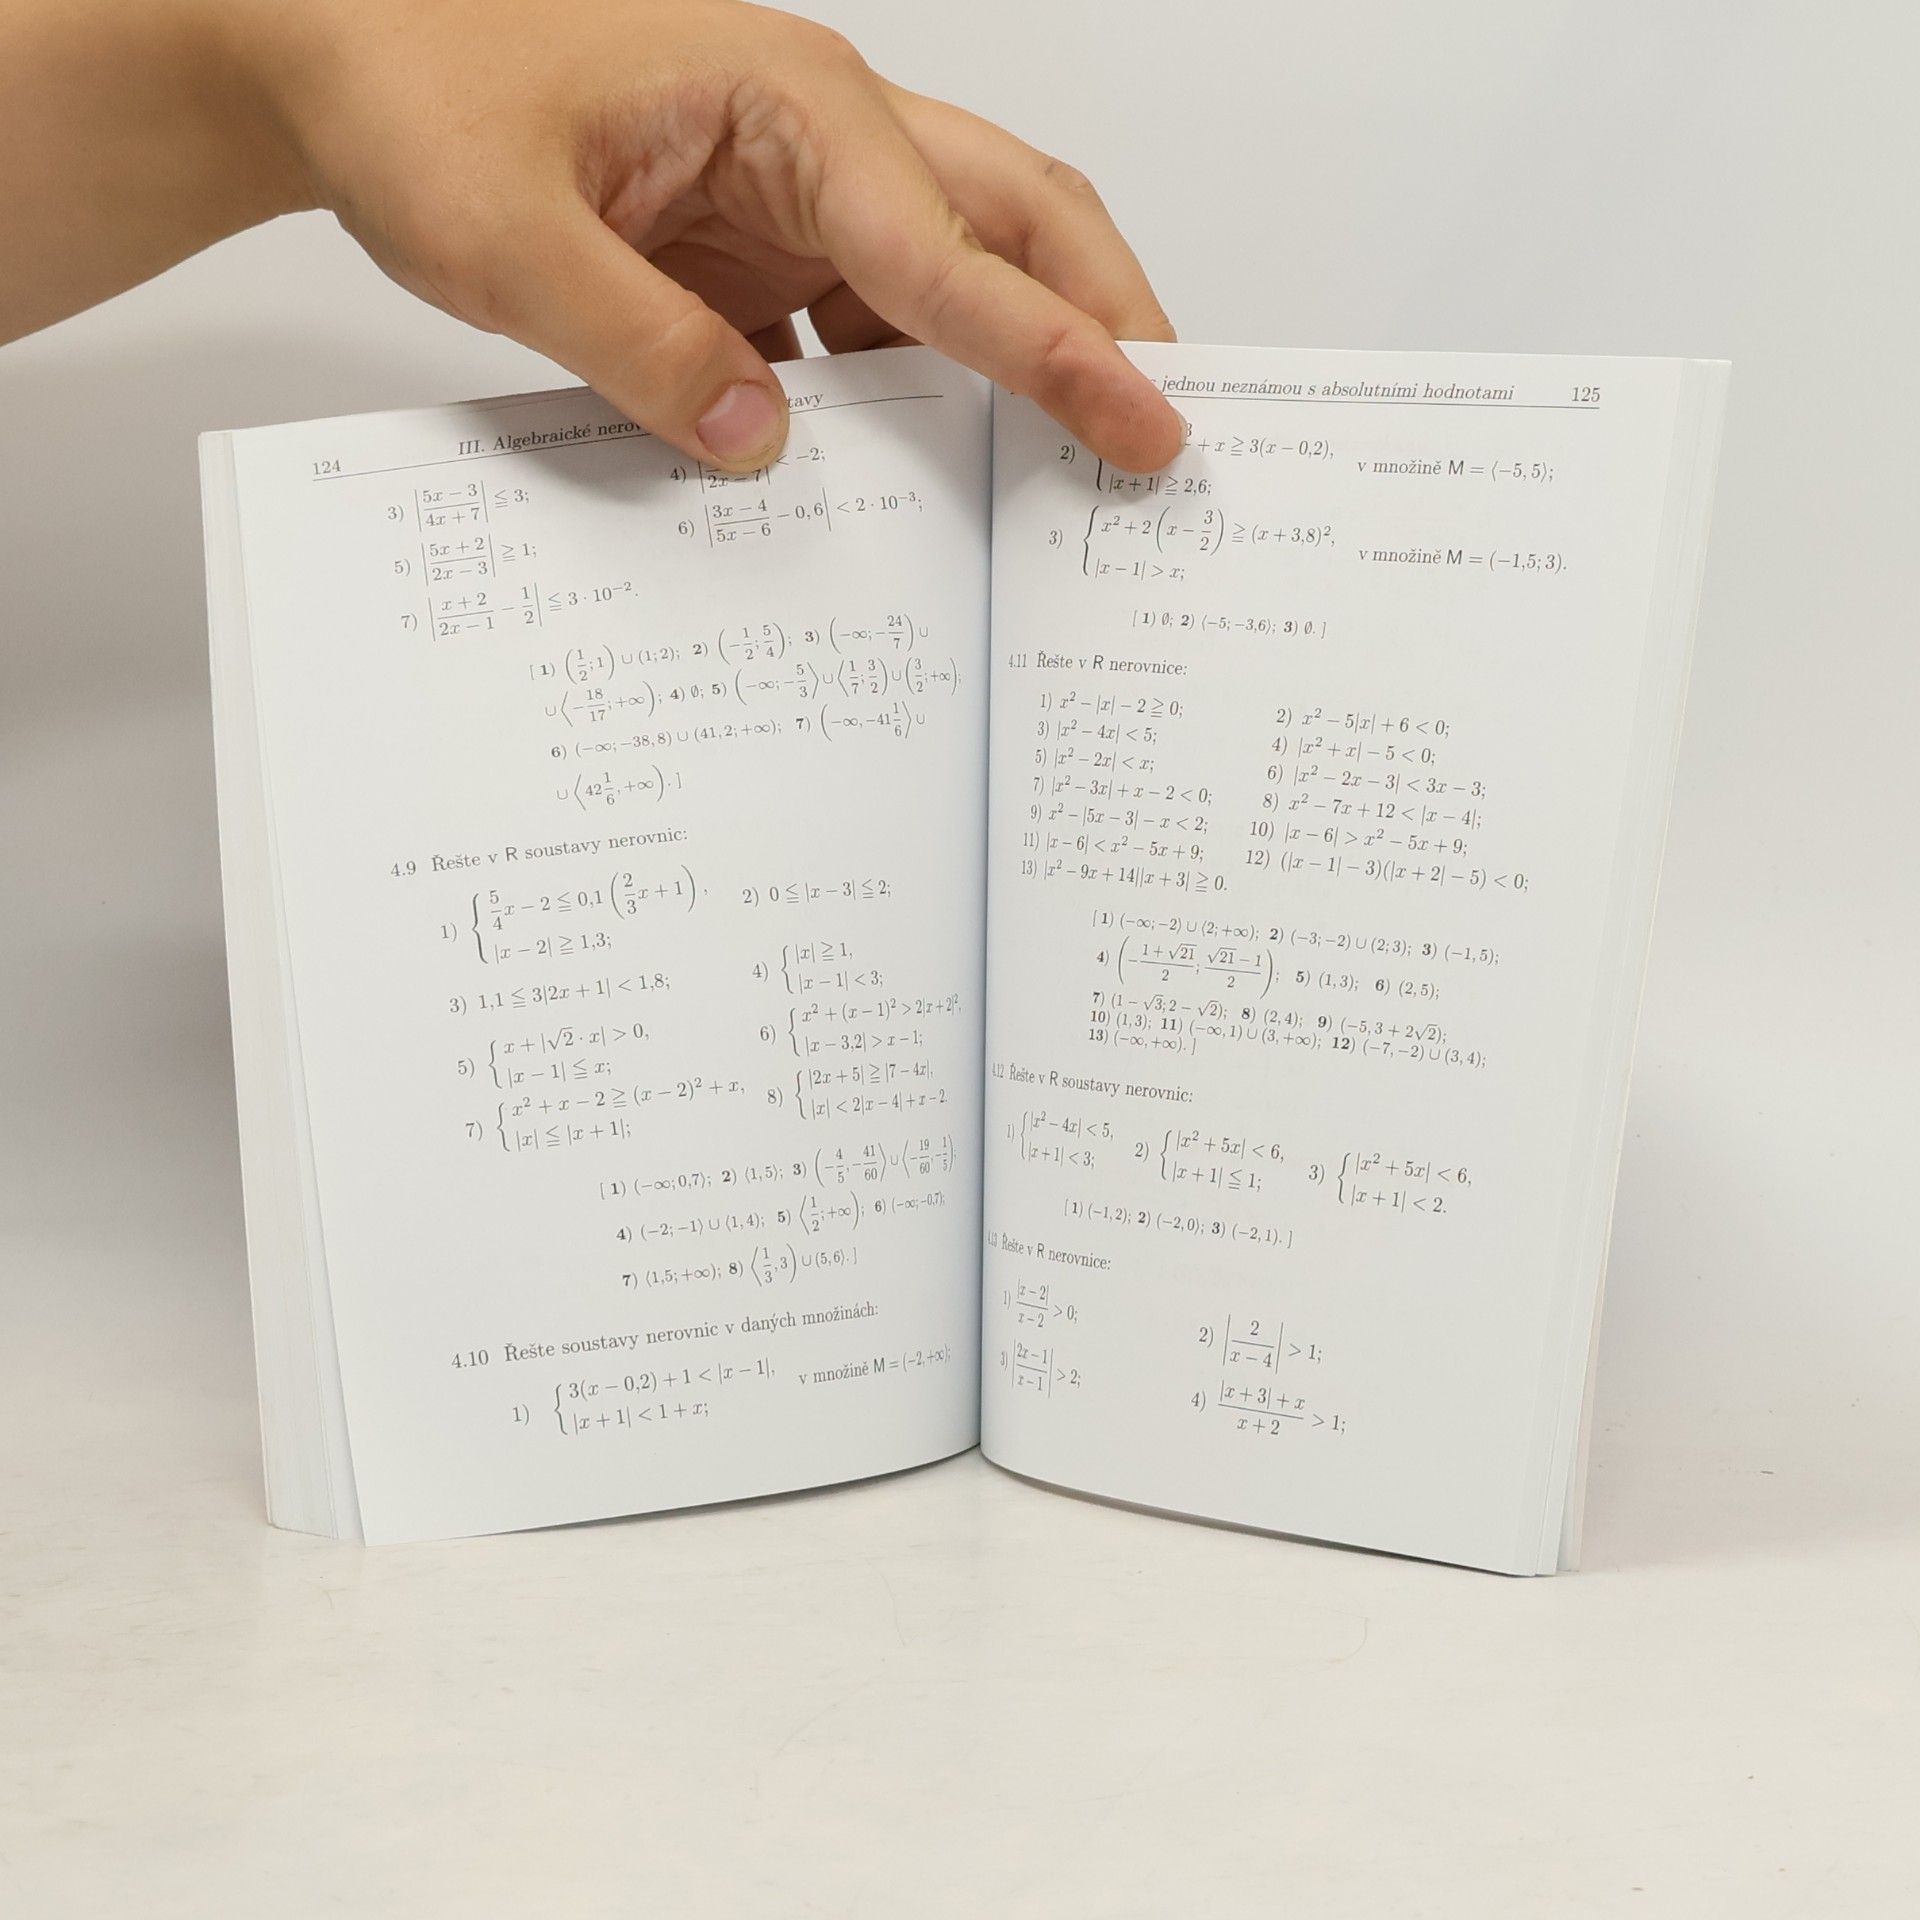 124
III. Algebraické
3) |(5x − 3)/(4x + 7)| ≦ 3;
4) 2x − 7| < −2;
5) |(5x + 2)/(2x − 3)| ≧ 1;
6) |(3x − 4)/(5x − 6) − 0,6| < 2 · 10⁻³;
7) |(x + 2)/(2x − 1) − 1/2| ≦ 3 · 10⁻².
[ 1) (1/2; 1) ∪ (1; 2); 2) (−1/2; 5/4); 3) (−∞; −24/7) ∪
∪ ⟨−18/17; +∞); 4) ∅; 5) (−∞; −5/3⟩ ∪ ⟨1/7; 3/2) ∪ (3/2; +∞);
6) (−∞; −38,8) ∪ (41,2; +∞); 7) (−∞, −41 1/6⟩ ∪
∪ ⟨42 1/6, +∞). ]
4.9 Řešte v R soustavy nerovnic:
1) { 5/4 x − 2 ≦ 0,1 (2/3 x + 1),
|x − 2| ≧ 1,3;
2) 0 ≦ |x − 3| ≦ 2;
3) 1,1 ≦ 3|2x + 1| < 1,8;
4) { |x| ≧ 1,
|x − 1| < 3;
5) { x + |√2 · x| > 0,
|x − 1| ≦ x;
6) { x² + (x − 1)² > 2|x + 2|²,
|x − 3,2| > x − 1;
7) { x² + x − 2 ≧ (x − 2)² + x,
|x| ≦ |x + 1|;
8) { |2x + 5| ≧ |7 − 4x|,
|x| < 2|x − 4| + x − 2.
[ 1) (−∞; 0,7⟩; 2) ⟨1, 5⟩; 3) (−4/5, −41/60⟩ ∪ ⟨−19/60, −1/5);
4) (−2; −1⟩ ∪ ⟨1, 4); 5) ⟨1/2; +∞); 6) (−∞; −0,7);
7) ⟨1,5; +∞); 8) ⟨1/3, 3) ∪ (5, 6⟩. ]
4.10 Řešte soustavy nerovnic v daných množinách:
1) { 3(x − 0,2) + 1 < |x − 1|,
|x + 1| < 1 + x;
v množině M = (−2, +∞);
jednou neznámou s absolutními hodnotami 125
2) + x ≧ 3(x − 0,2),
|x + 1| ≧ 2,6;
v množině M = ⟨−5, 5⟩;
3) { x² + 2 (x − 3/2) ≧ (x + 3,8)²,
|x − 1| > x;
v množině M = (−1,5; 3).
[ 1) ∅; 2) ⟨−5; −3,6⟩; 3) ∅. ]
4.11 Řešte v R nerovnice:
1) x² − |x| − 2 ≧ 0;
2) x² − 5|x| + 6 < 0;
3) |x² − 4x| < 5;
4) |x² + x| − 5 < 0;
5) |x² − 2x| < x;
6) |x² − 2x − 3| < 3x − 3;
7) |x² − 3x| + x − 2 < 0;
8) x² − 7x + 12 < |x − 4|;
9) x² − |5x − 3| − x < 2;
10) |x − 6| > x² − 5x + 9;
11) |x − 6| < x² − 5x + 9;
12) (|x − 1| − 3)(|x + 2| − 5) < 0;
13) |x² − 9x + 14||x + 3| ≧ 0.
[ 1) (−∞; −2⟩ ∪ ⟨2; +∞); 2) (−3; −2) ∪ (2; 3); 3) (−1, 5);
4) (−(1 + √21)/2; (√21 − 1)/2); 5) (1, 3); 6) (2, 5);
7) (1 − √3; 2 − √2); 8) (2, 4); 9) (−5, 3 + 2√2);
10) (1, 3); 11) (−∞, 1) ∪ (3, +∞); 12) (−7, −2) ∪ (3, 4);
13) (−∞, +∞). ]
4.12 Řešte v R soustavy nerovnic:
1) { |x² − 4x| < 5,
|x + 1| < 3;
2) { |x² + 5x| < 6,
|x + 1| ≦ 1;
3) { |x² + 5x| < 6,
|x + 1| < 2.
[ 1) (−1, 2); 2) (−2, 0⟩; 3) (−2, 1). ]
4.13 Řešte v R nerovnice:
1) |x − 2|/(x − 2) > 0;
2) |2/(x − 4)| > 1;
3) |(2x − 1)/(x − 1)| > 2;
4) (|x + 3| + x)/(x + 2) > 1;